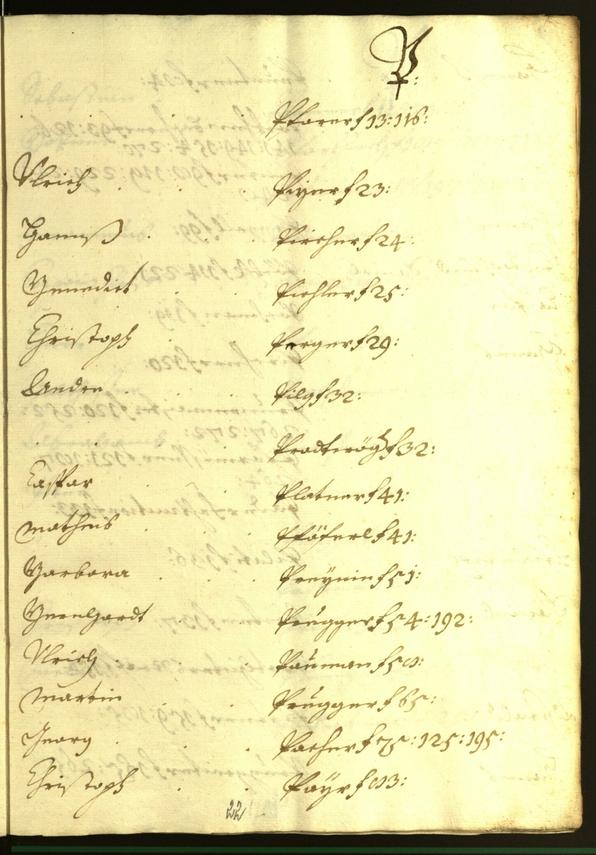 P:
Pfarer f 13: 116:
Ulrich . . . Piger f 23:
Hannß . . . Pircher f 24
Benedict . . . Pichler f 25:
Christoph . . . Perger f 29:
Andre . . . Pilg f 32:
Prodtwög f 32:
Caspar . . . Platner f 41:
Matheis . . . Pföferl f 41:
Barbara . . . Preynin f 51:
Bernhardt . . . Prugger f 54: 192:
Ulrich . . . Pauman f
Martin . . . Prugger f 65:
Georg . . . Pacher f 75: 125: 195:
Christoph . . . Payr f
22